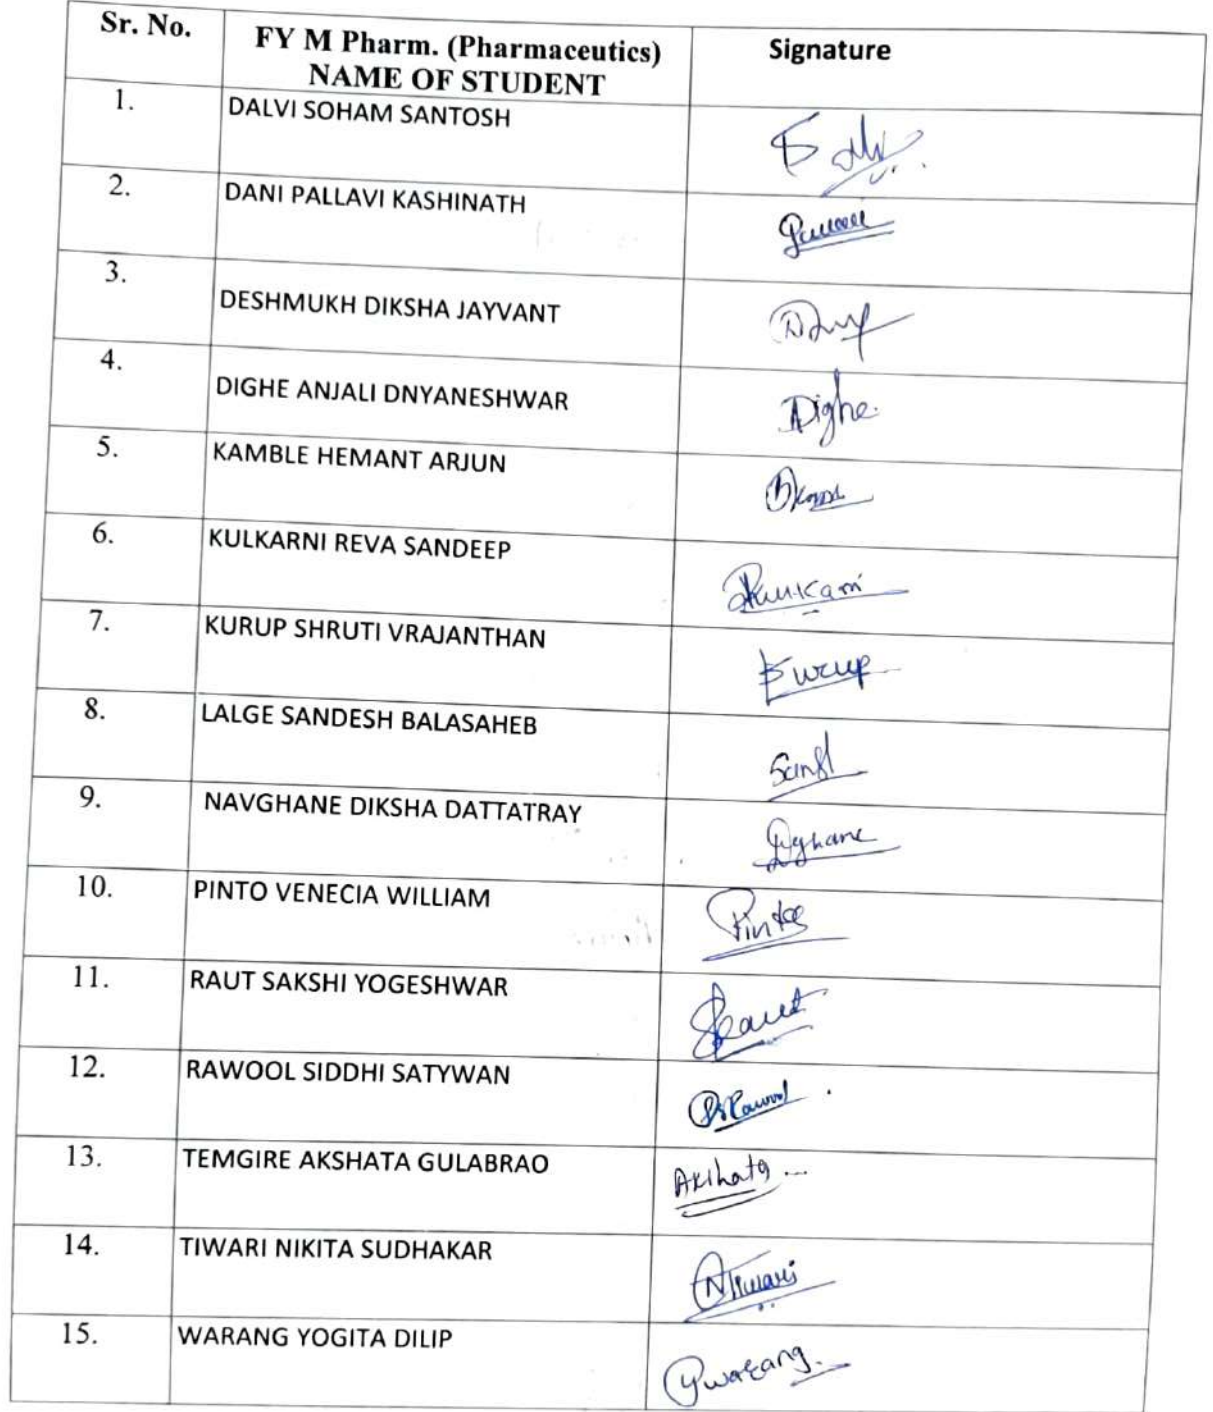 Sr. No.
FY M Pharm. (Pharmaceutics)
NAME OF STUDENT
Signature
1.
DALVI SOHAM SANTOSH
2.
DANI PALLAVI KASHINATH
3.
DESHMUKH DIKSHA JAYVANT
4.
DIGHE ANJALI DNYANESHWAR
Dighe.
5.
KAMBLE HEMANT ARJUN
6.
KULKARNI REVA SANDEEP
7.
KURUP SHRUTI VRAJANTHAN
Kurup
8.
LALGE SANDESH BALASAHEB
9.
NAVGHANE DIKSHA DATTATRAY
10.
PINTO VENECIA WILLIAM
Pinto
11.
RAUT SAKSHI YOGESHWAR
12.
RAWOOL SIDDHI SATYWAN
13.
TEMGIRE AKSHATA GULABRAO
Akshata
14.
TIWARI NIKITA SUDHAKAR
NTiwari
15.
WARANG YOGITA DILIP
Ywarang.